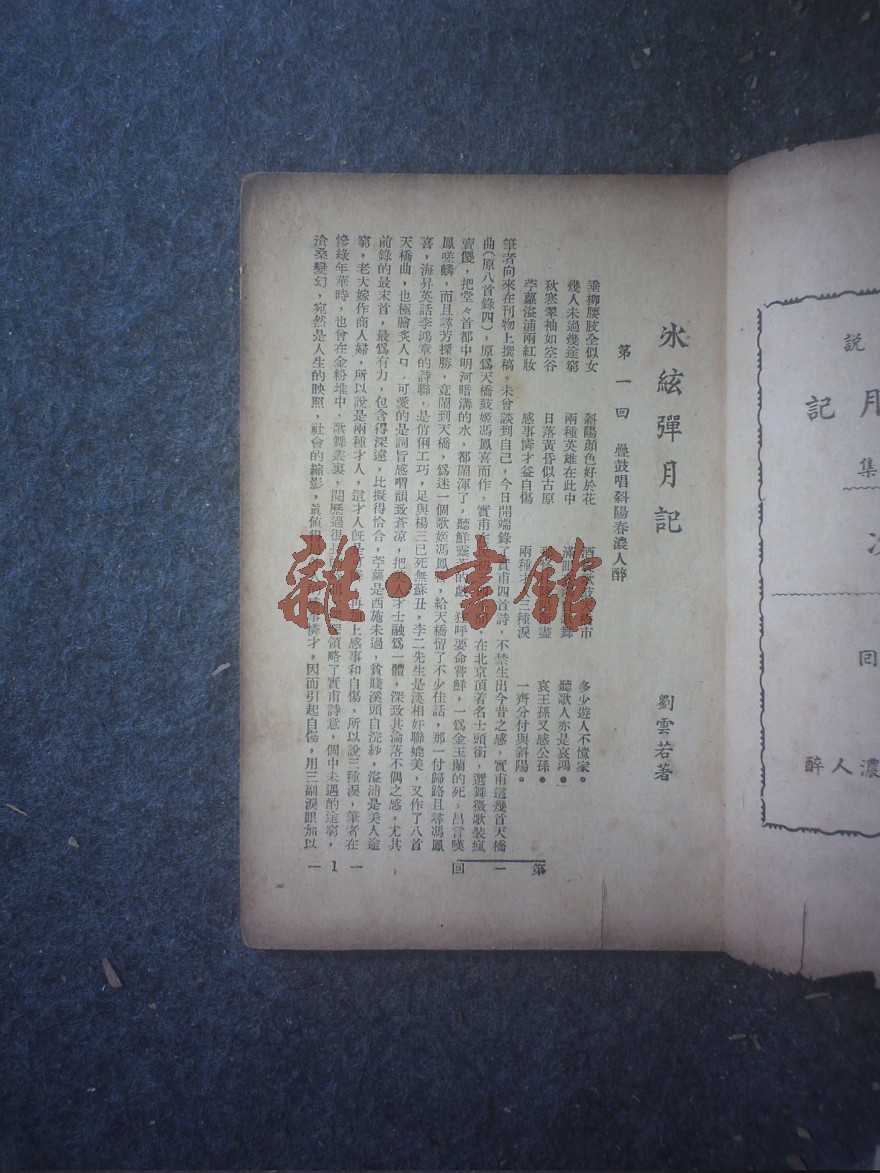 冰絃彈月記
劉雲若著
第一回　疊鼓唱斜陽春濃人醉
垂柳腰肢全似女　斜陽顏色好於花　酒　歌　市　多少遊人不憶家。
幾人未過幾途窮　兩種英雄在此中　滿眼　聽歌人亦是哀鴻。
秋寒翠袖如空谷　日落黃昏似古原　盡　哀王孫又感公孫。
苧蘿湓浦兩紅妝　感事憐才益自傷　兩種才人三種淚　一齊分付與斜陽。
筆者向來在刊物上撰稿，未曾談到自己，今日開端錄了實甫四首詩，不禁生出今昔之感，實甫這幾首天橋
曲（原八首錄四），原爲天橋鼓姬馮鳳喜而作，實甫在　，在北京頂著名士頭銜，選舞徵歌裝瘋
賣儍，把堂々首都中明河暗溝的水，都鬧渾了，聽鮮靈芝的戲，狂呼要命嘗鮮，一爲金玉蘭的死，昌言嘆
鳳嗟麟，而且尋芳探勝，竟鬧到天橋，爲迷一個歌姬馮鳳喜，給天橋留了不少佳話，那一付歸路且尋馮鳳
喜，海昇英話李鴻章的詩聯，是俏俐工巧，足與楊三已死無蘇丑，李二先生是漢相奸聯媲美，又作了八首
天橋曲，也極膾炙人口，可愛的是詞旨感喟韻致蒼凉，把美人才士融爲一體，深致其淪落不偶之感，尤其
前錄的最末首，最爲有力，包含得深遠，比擬得恰合，苧蘿是西施未過，貧賤溪頭自浣紗，湓浦是美人途
窮，老大嫁作商人婦，所以說是兩種才人，這才人旣是　再　上感事和自傷，所以說三種淚，筆者在
慘綠年華時，也曾在金粉堆中，歌舞叢裏，閱歷過很長　領略了實甫詩意，個中未遇酌途窮，
洽桑變幻，宛然是人生的映照，社會的縮影，眞値得　事憐才，因而引起自傷，用三副淚眼加以
第一回
— 1 —
說
月
記
集
次
回
濃人醉
雜·書館